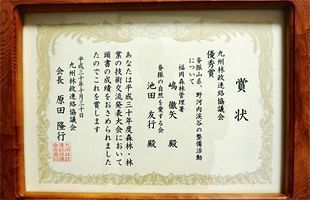 賞状
九州林政連絡協議会
優秀賞
脊振山系、野河内渓谷の整備活動
について
福岡森林管理署
嶋 徹矢 殿
脊振の自然を愛する会
池田 友行 殿
あなたは平成三十年度森林・林
業の技術交流発表大会において
頭書の成績をおさめられまし
たのでこれを賞します
平成三十年十月三十日
九州林政連絡協議会
会長 原田 隆行